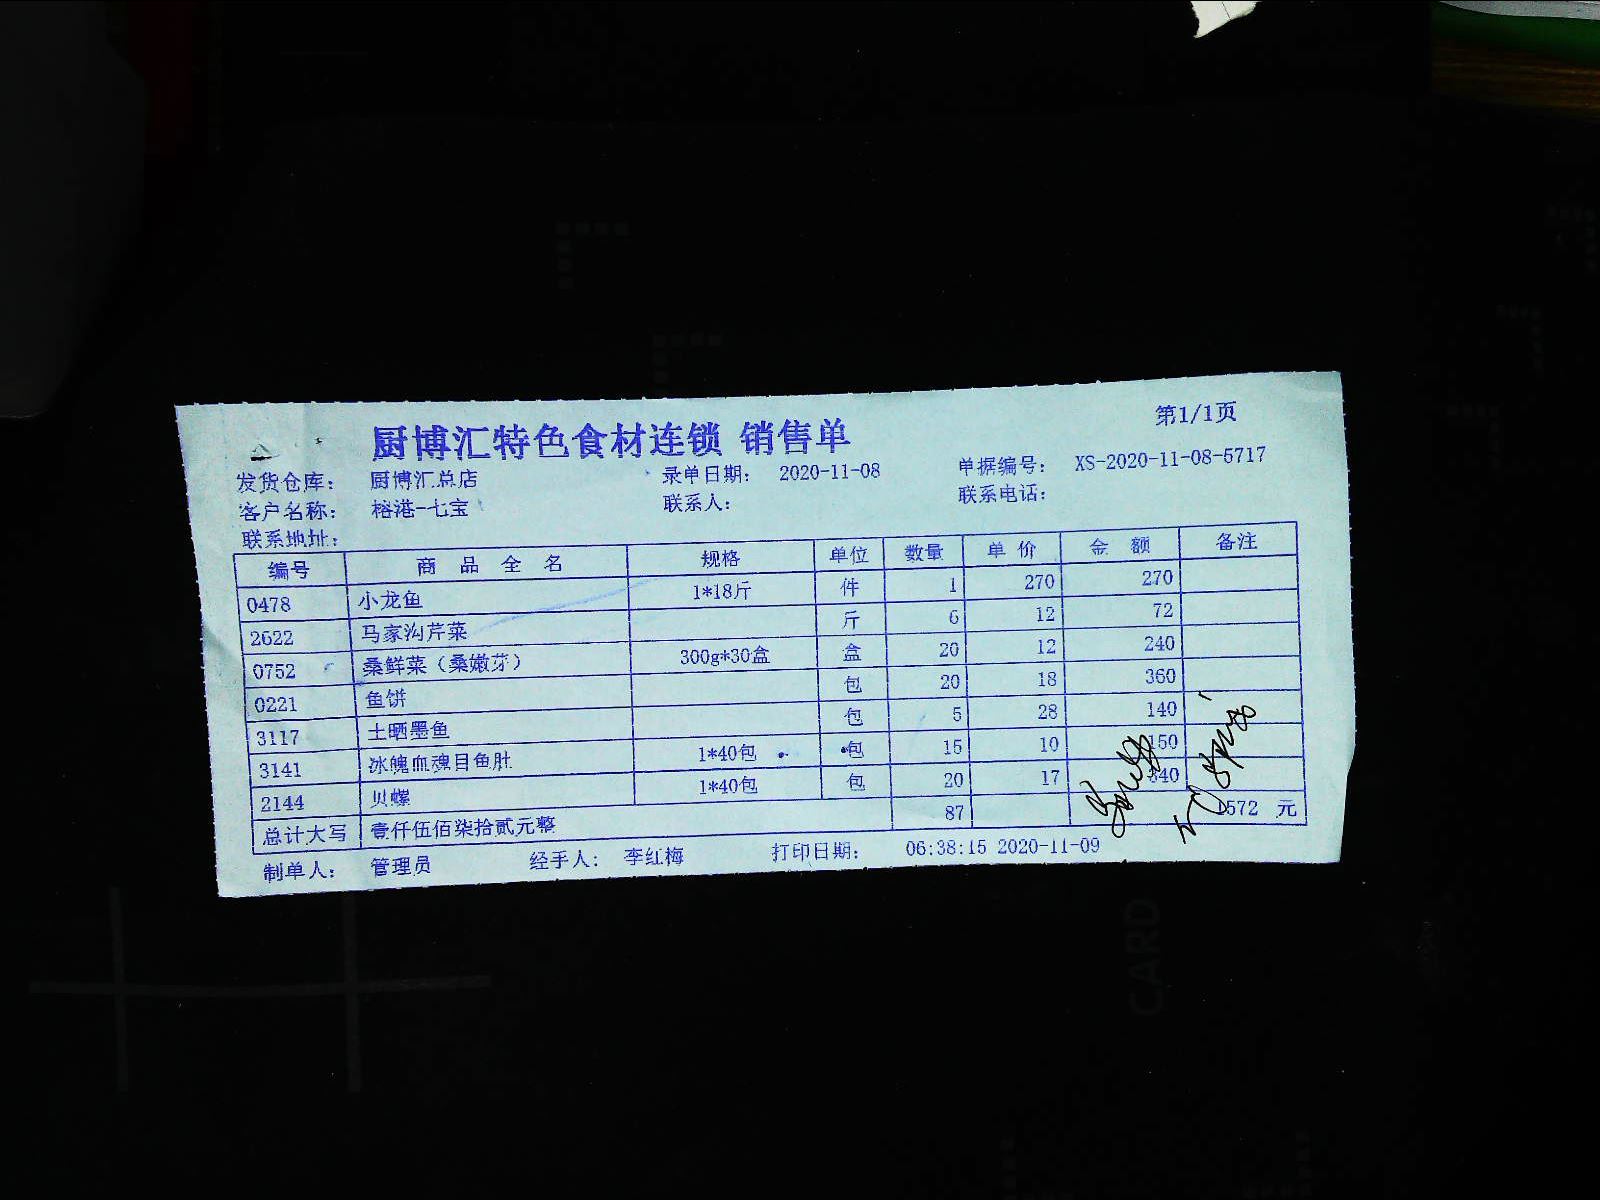 厨博汇特色食材连锁 销售单
第1/1页
发货仓库： 厨博汇总店 录单日期： 2020-11-08 单据编号： XS-2020-11-08-5717
客户名称： 榕港-七宝 联系人： 联系电话：
联系地址：
编号 商 品 全 名 规格 单位 数量 单 价 金 额 备注
0478 小龙鱼 1*18斤 件 1 270 270
2622 马家沟芹菜 斤 6 12 72
0752 桑鲜菜（桑嫩芽） 300g*30盒 盒 20 12 240
0221 鱼饼 包 20 18 360
3117 土晒墨鱼 包 5 28 140
3141 冰魄血魂目鱼肚 1*40包 包 15 10 150
2144 贝螺 1*40包 包 20 17 340
总计大写 壹仟伍佰柒拾贰元整 87 1572 元
制单人： 管理员 经手人： 李红梅 打印日期： 06:38:15 2020-11-09
CARD